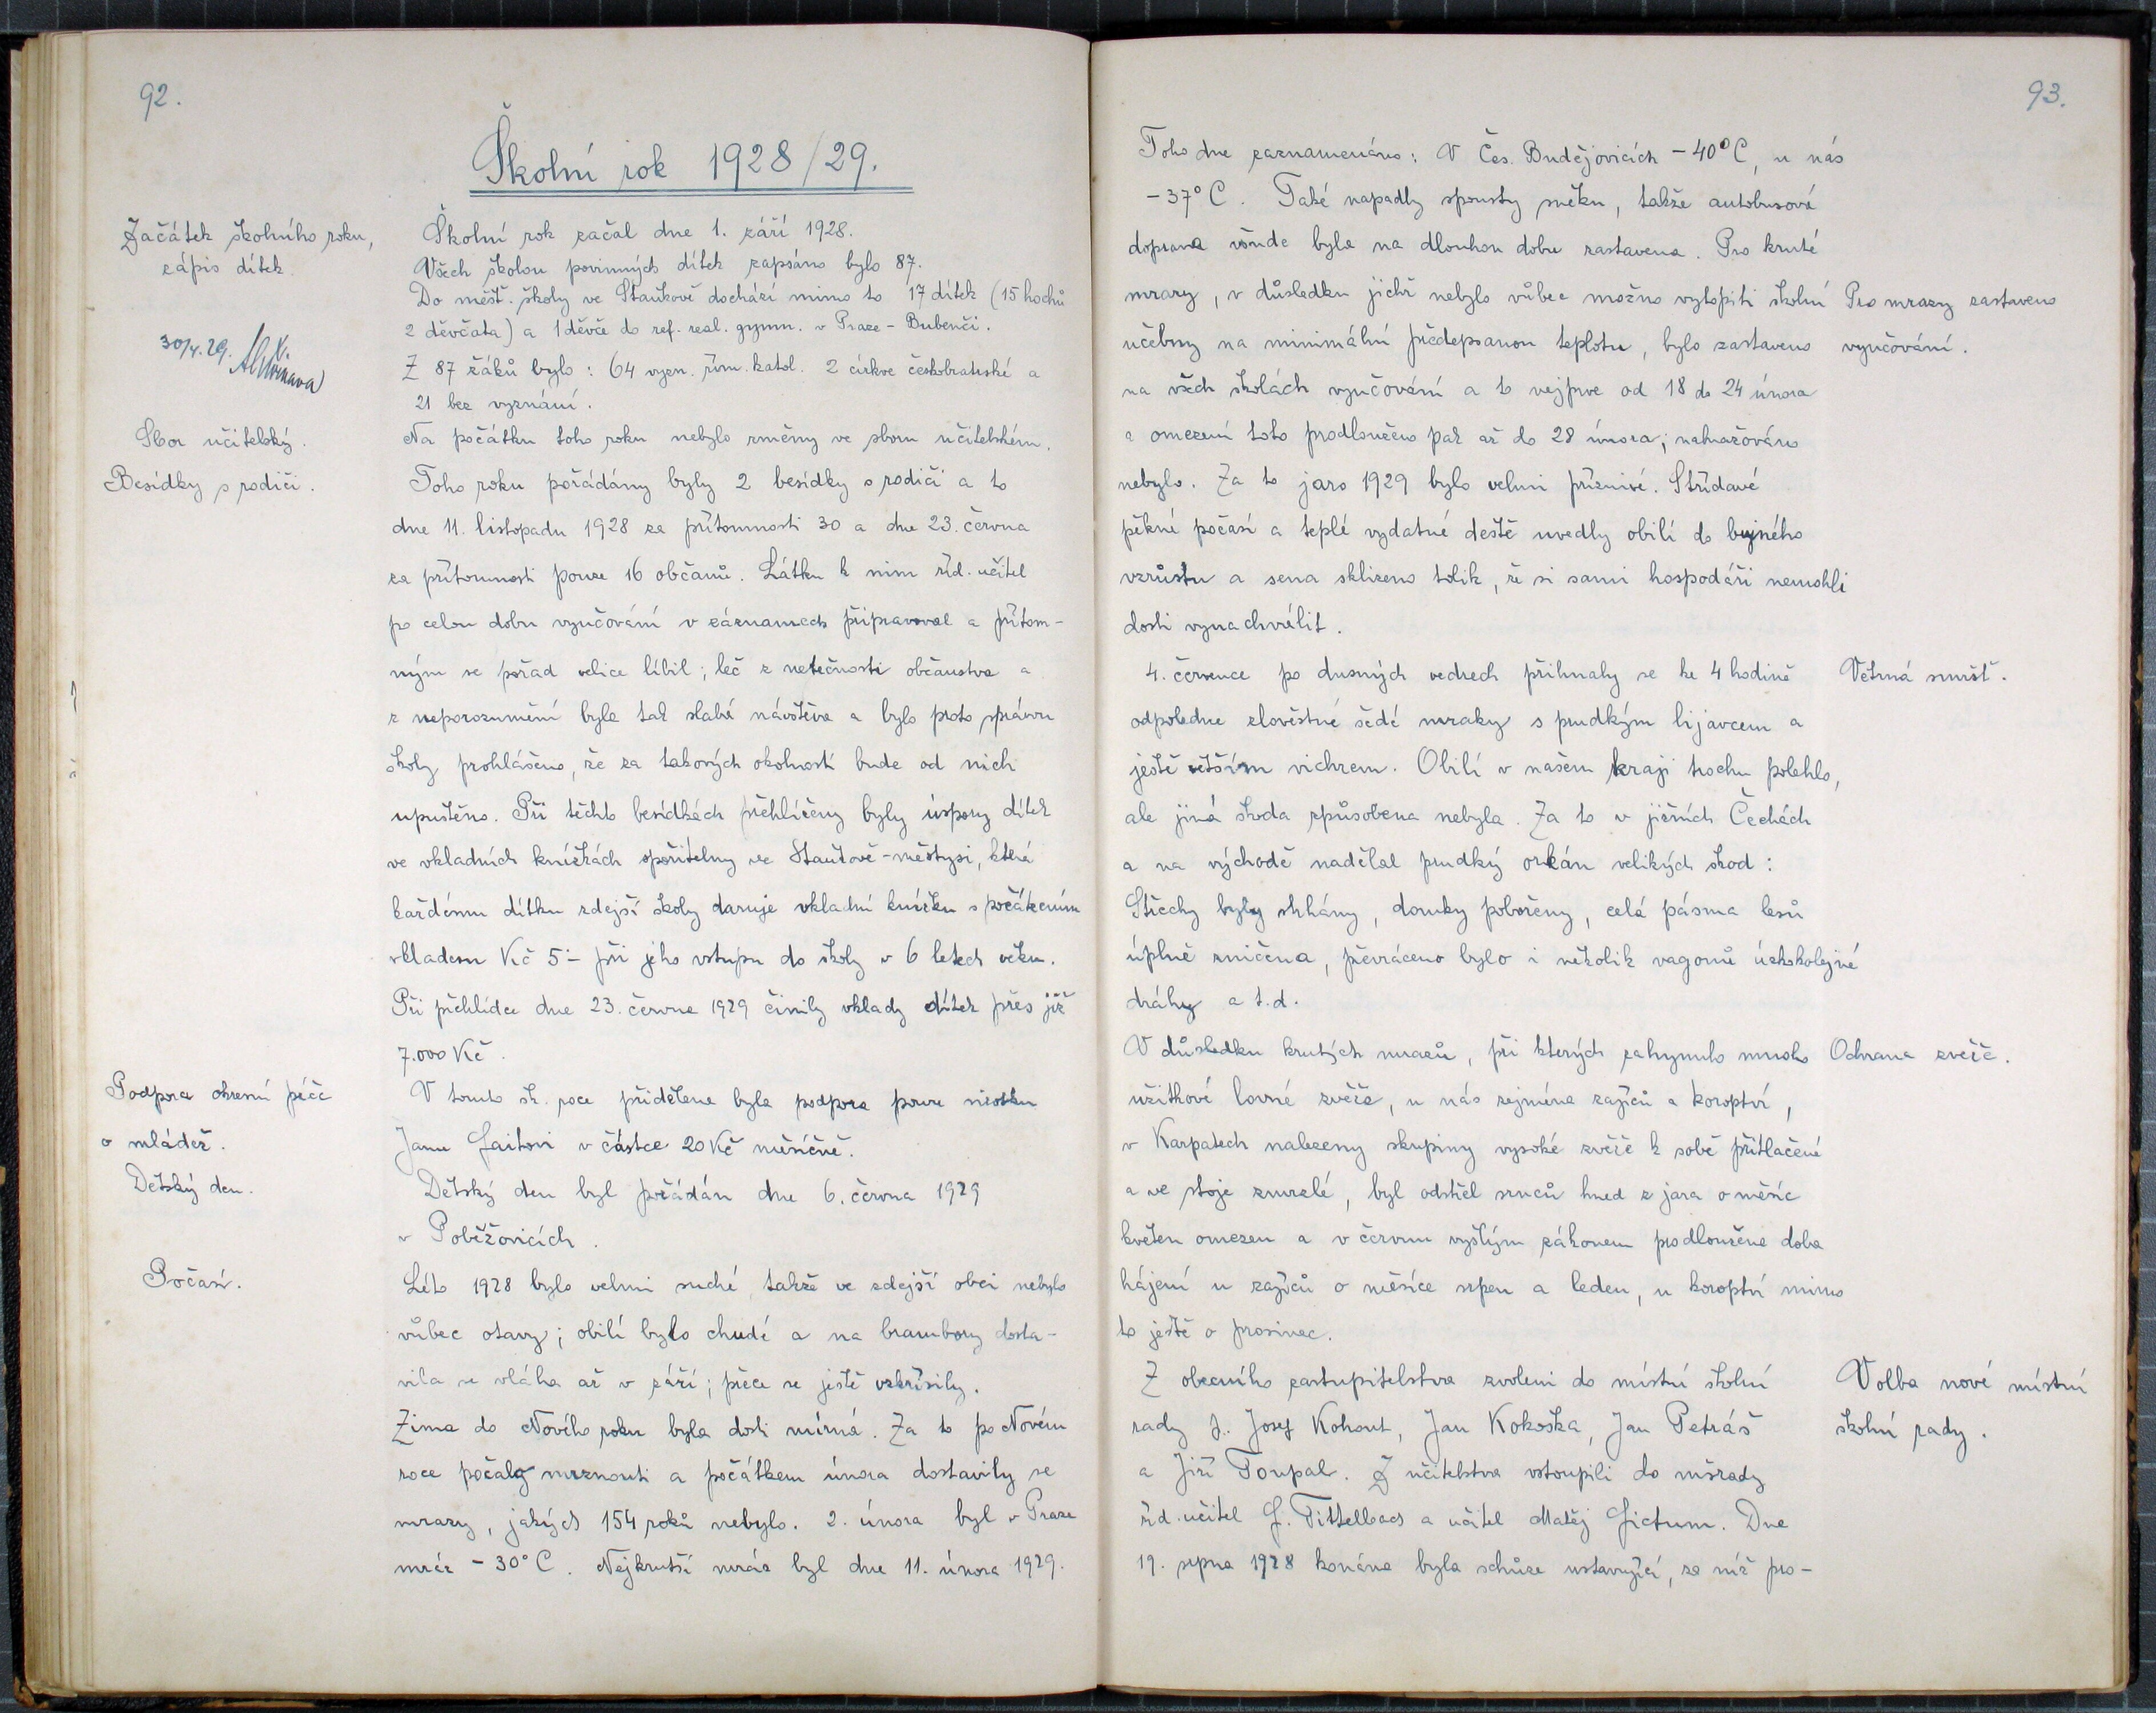 92.
Školní rok 1928/29.
Začátek školního roku,
zápis dítek.
Školní rok začal dne 1. září 1928.
Všech školou povinných dítek zapsáno bylo 87.
Do měšť. školy ve Staňkově dochází mimo to 17 dítek (15 hochů
2 děvčata) a 1 děvče do ref. real. gymn. v Praze - Bubenči.
30/4. 29.
Z 87 žáků bylo: 64 vyzn. řím. katol. 2 církve českobratrské a
21 bez vyznání.
Sbor učitelský.
Na počátku toho roku nebylo změny ve sboru učitelském.
Besídky s rodiči.
Toho roku pořádány byly 2 besídky s rodiči a to
dne 11. listopadu 1928 za přítomnosti 30 a dne 23. června
za přítomnosti pouze 16 občanů. Látku k nim říd. učitel
po celou dobu vyučování v záznamech připravoval a přítom-
ným se pořad velice líbil; leč z netečnosti občanstva a
z neporozumění byla tak slabá návštěva a bylo proto správou
školy prohlášeno, že za takových okolností bude od nich
upuštěno. Při těchto besídkách přehlíženy byly úspory dítek
ve vkladních knížkách spořitelny ve Staňkově-městysi, která
každému dítku zdejší školy daruje vkladní knížku s počátečním
vkladem Kč 5·- při jeho vstupu do školy v 6 letech věku.
Při přehlídce dne 23. června 1929 činily vklady dítek přes již
7.000 Kč.
Podpora okresní péče
o mládež.
V tomto šk. roce přidělena byla podpora pouze sirotku
Janu v částce 20 Kč měsíčně.
Dětský den.
Dětský den byl pořádán dne 6. června 1929
v Poběžovicích.
Počasí.
Léto 1928 bylo velmi suché, takže ve zdejší obci nebylo
vůbec otavy; obilí bylo chudé a na brambory dosta-
vila se vláha až v září; přece se ještě vzkřísily.
Zima do Nového roku byla dosti mírná. Za to po Novém
roce počalo mrznouti a počátkem února dostavily se
mrazy, jakých 154 roků nebylo. 2. února byl v Praze
mráz - 30° C. Nejkrutší mráz byl dne 11. února 1929.
93.
Toho dne zaznamenáno: V Čes. Budějovicích - 40° C, u nás
- 37° C. Také napadly spousty sněhu, takže autobusová
doprava všude byla na dlouhou dobu zastavena. Pro kruté
mrazy, v důsledku jichž nebylo vůbec možno vytopiti školní
učebny na minimální předepsanou teplotu, bylo zastaveno
Pro mrazy zastaveno
vyučování.
na všech školách vyučování a to nejprve od 18 do 24 února
a omezení toto prodlouženo pak až do 28 února; nahražováno
nebylo. Za to jaro 1929 bylo velmi příznivé. Střídavé
pěkné počasí a teplé vydatné deště uvedly obilí do bujného
vzrůstu a sena sklizeno tolik, že si sami hospodáři nemohli
dosti vynachválit.
Větrná smršť.
4. července po dusných vedrech přihnaly se ke 4 hodině
odpoledne zlověstné šedé mraky s prudkým lijavcem a
ještě větším vichrem. Obilí v našem kraji trochu polehlo,
ale jiná škoda způsobena nebyla. Za to v jižních Čechách
a na východě nadělal prudký orkán velikých škod:
Střechy byly strhány, domky pobořeny, celá pásma lesů
úplně zničena, převráceno bylo i několik vagonů úzkokolejné
dráhy a t.d.
Ochrana zvěře.
V důsledku krutých mrazů, při kterých zahynulo mnoho
užitkové lovné zvěře, u nás zejména zajíců a koroptví,
v Karpatech nalezeny skupiny vysoké zvěře k sobě přitlačené
a ve stoje zmrzlé, byl odstřel srnců hned z jara o měsíc
květen omezen a v červnu vyšlým zákonem prodloužena doba
hájení u zajíců o měsíce srpen a leden, u koroptví mimo
to ještě o prosinec.
Volba nové místní
školní rady.
Z obecního zastupitelstva zvoleni do místní školní
rady p. Josef Kohout, Jan Kokoška, Jan Petráš
a Jiří Toupal. Z učitelstva vstoupili do mšrady
říd. učitel J. Tittelbach a učitel Matěj Jictum. Dne
19. srpna 1928 konána byla schůze ustavující, za níž pro-